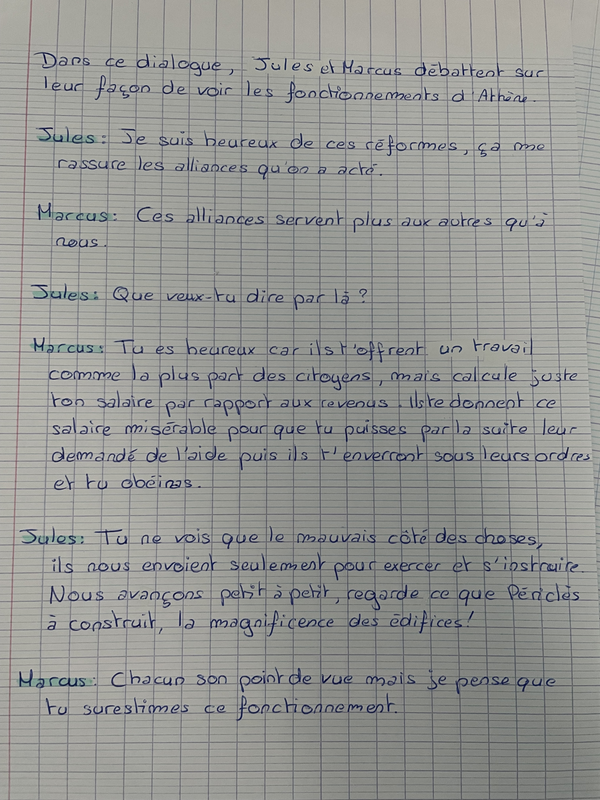 Dans ce dialogue, Jules et Marcus débattent sur
leur façon de voir les fonctionnements d'Athène.
Jules: Je suis heureux de ces réformes, ça me
rassure les alliances qu'on a acté.
Marcus: Ces alliances servent plus aux autres qu'à
nous.
Jules: Que veux-tu dire par là ?
Marcus: Tu es heureux car ils t'offrent un travail
comme la plus part des citoyens, mais calcule juste
ton salaire par rapport aux revenus. Ils te donnent ce
salaire misérable pour que tu puisses par la suite leur
demandé de l'aide puis ils t'enverront sous leurs ordres
et tu obéiras.
Jules: Tu ne vois que le mauvais côté des choses,
ils nous envoient seulement pour exercer et s'instruire.
Nous avançons petit à petit, regarde ce que Périclès
à construit, la magnificence des édifices!
Marcus: Chacun son point de vue mais je pense que
tu surestimes ce fonctionnement.